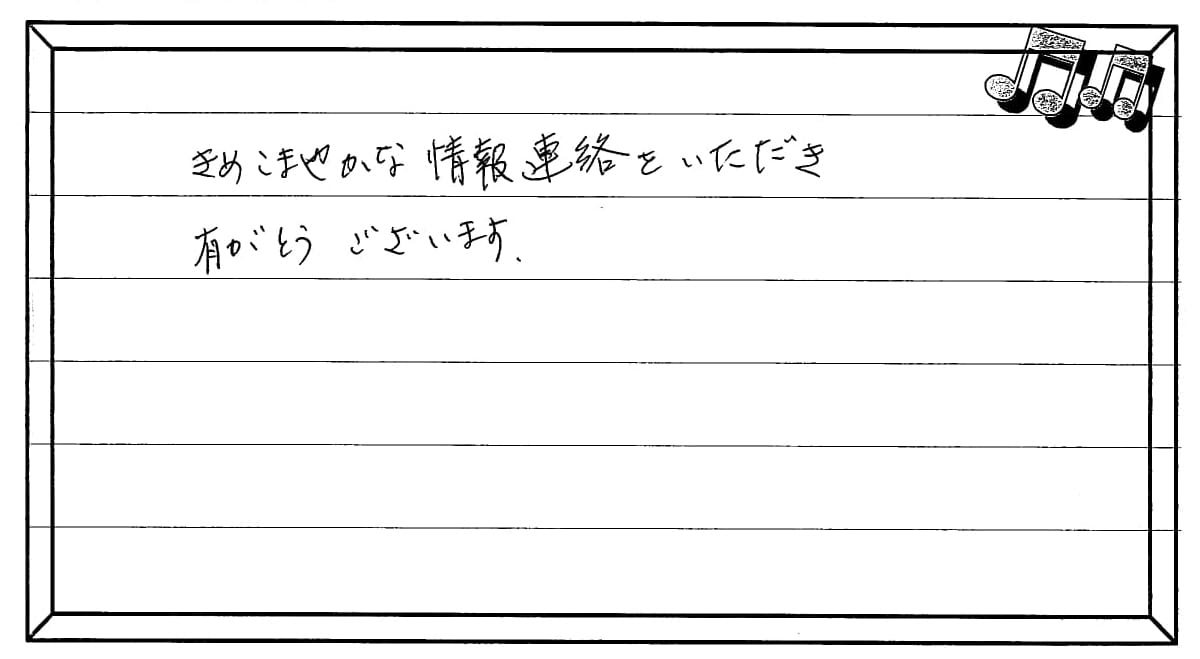 きめこまやかな 情報連絡をいただき
有がとう ございます.